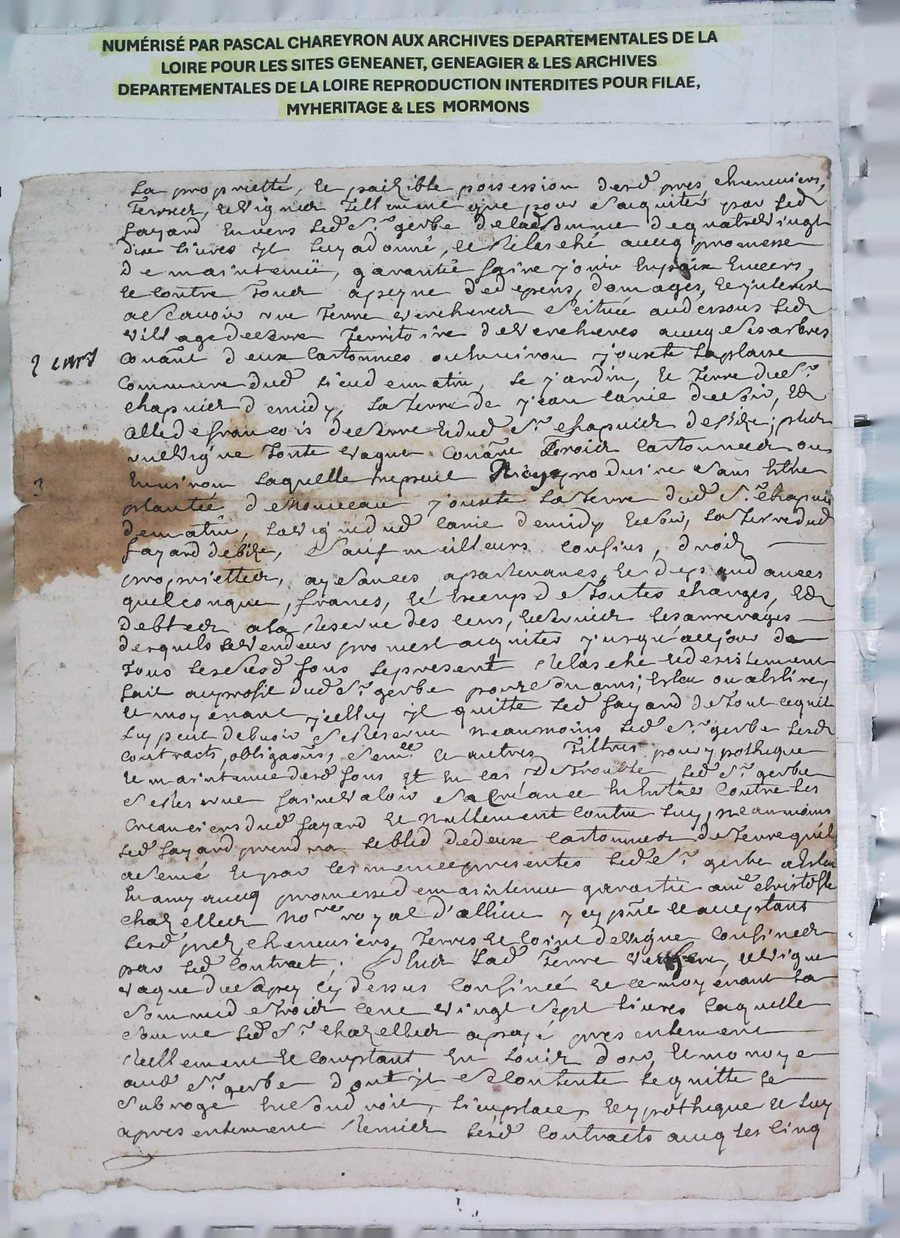 NUMÉRISÉ PAR PASCAL CHAREYRON AUX ARCHIVES DEPARTEMENTALES DE LA
LOIRE POUR LES SITES GENEANET, GENEAGIER & LES ARCHIVES
DEPARTEMENTALES DE LA LOIRE REPRODUCTION INTERDITES POUR FILAE,
MYHERITAGE & LES MORMONS
La proprietté, et paizible possession desd prez, cheneviers,
Terres, et vignes Tellement que pour s'aquiter par led
fayard envers led Sr gerbe de lad somme de quatre vingt
dix livres il luy a donné, et relasché avecq promesse
de maintenir, garantir faire jouir en paix envers,
et contre tous a peyne de depens, domages, et interest
a scavoir une Terre verchere scituée au dessous led
village Territoire de vercheres avecq ses arbres
conant deux cartonnes ou environ jouxte
commune dud lieu de matin, le jardin, et terre dud Sr
chapuis de midy, la terre de jean de soir, et
de françois et dud Sr chapuis de bize; plus
une vigne Toute vaque conant Trois cartonnees ou
environ laquelle ne peut Rien produire sans estre
plantée de nouveau jouxte la terre dud Sr chapuis
de matin, la vigne dud de midy et soir, la terre dud
fayard de bize, sauf meilleurs confins, droits
proprietter, aysances apartenances, et dependances
quelconque, francs, et de toutes charges, et
debtes a la reserve des cens, et servis les arrerages
desquels le vendeur promest aquiter jusqu'au jour de
tous lesd fons le present relasché et desistement
fait au profit dud Sr gerbe pour
et moyenant jcelluy il quitte led fayard de tout ce quil
luy peut debvoir se reserve neaumoins led Sr gerbe lesd
contracts, obligaons, et autres Tiltres pour ypotheque
et maintenue desd fons et en cas de Trouble led Sr gerbe
se reserve faire valoir sa créance contre les
créanciers dud fayard et nullement contre luy, neaumoins
led fayard prendra le bled de deux cartonnes de Terre quil
a semé et par les mesme presentes led Sr gerbe
avecq promesse de maintenir garantir a me christofle
chazelles nore royal d'allieu jcy pnt et aceptant
lesd prez, cheneviers, Terres et vigne confines
par led contract. Plus lad Terre verchere, et vigne
vaque cy dessus confinée et ce moyenant la
somme de Trois cent vingt sept livres laquelle
somme led Sr chazelles a payé presentement
reellement et comptant en Louis d'or, et monoye
aud Sr gerbe dont il se contente le quitte le
subroge en son droit, lieu, place, et ypotheque et luy
a presentement remis lesd contracts avecq les cinq